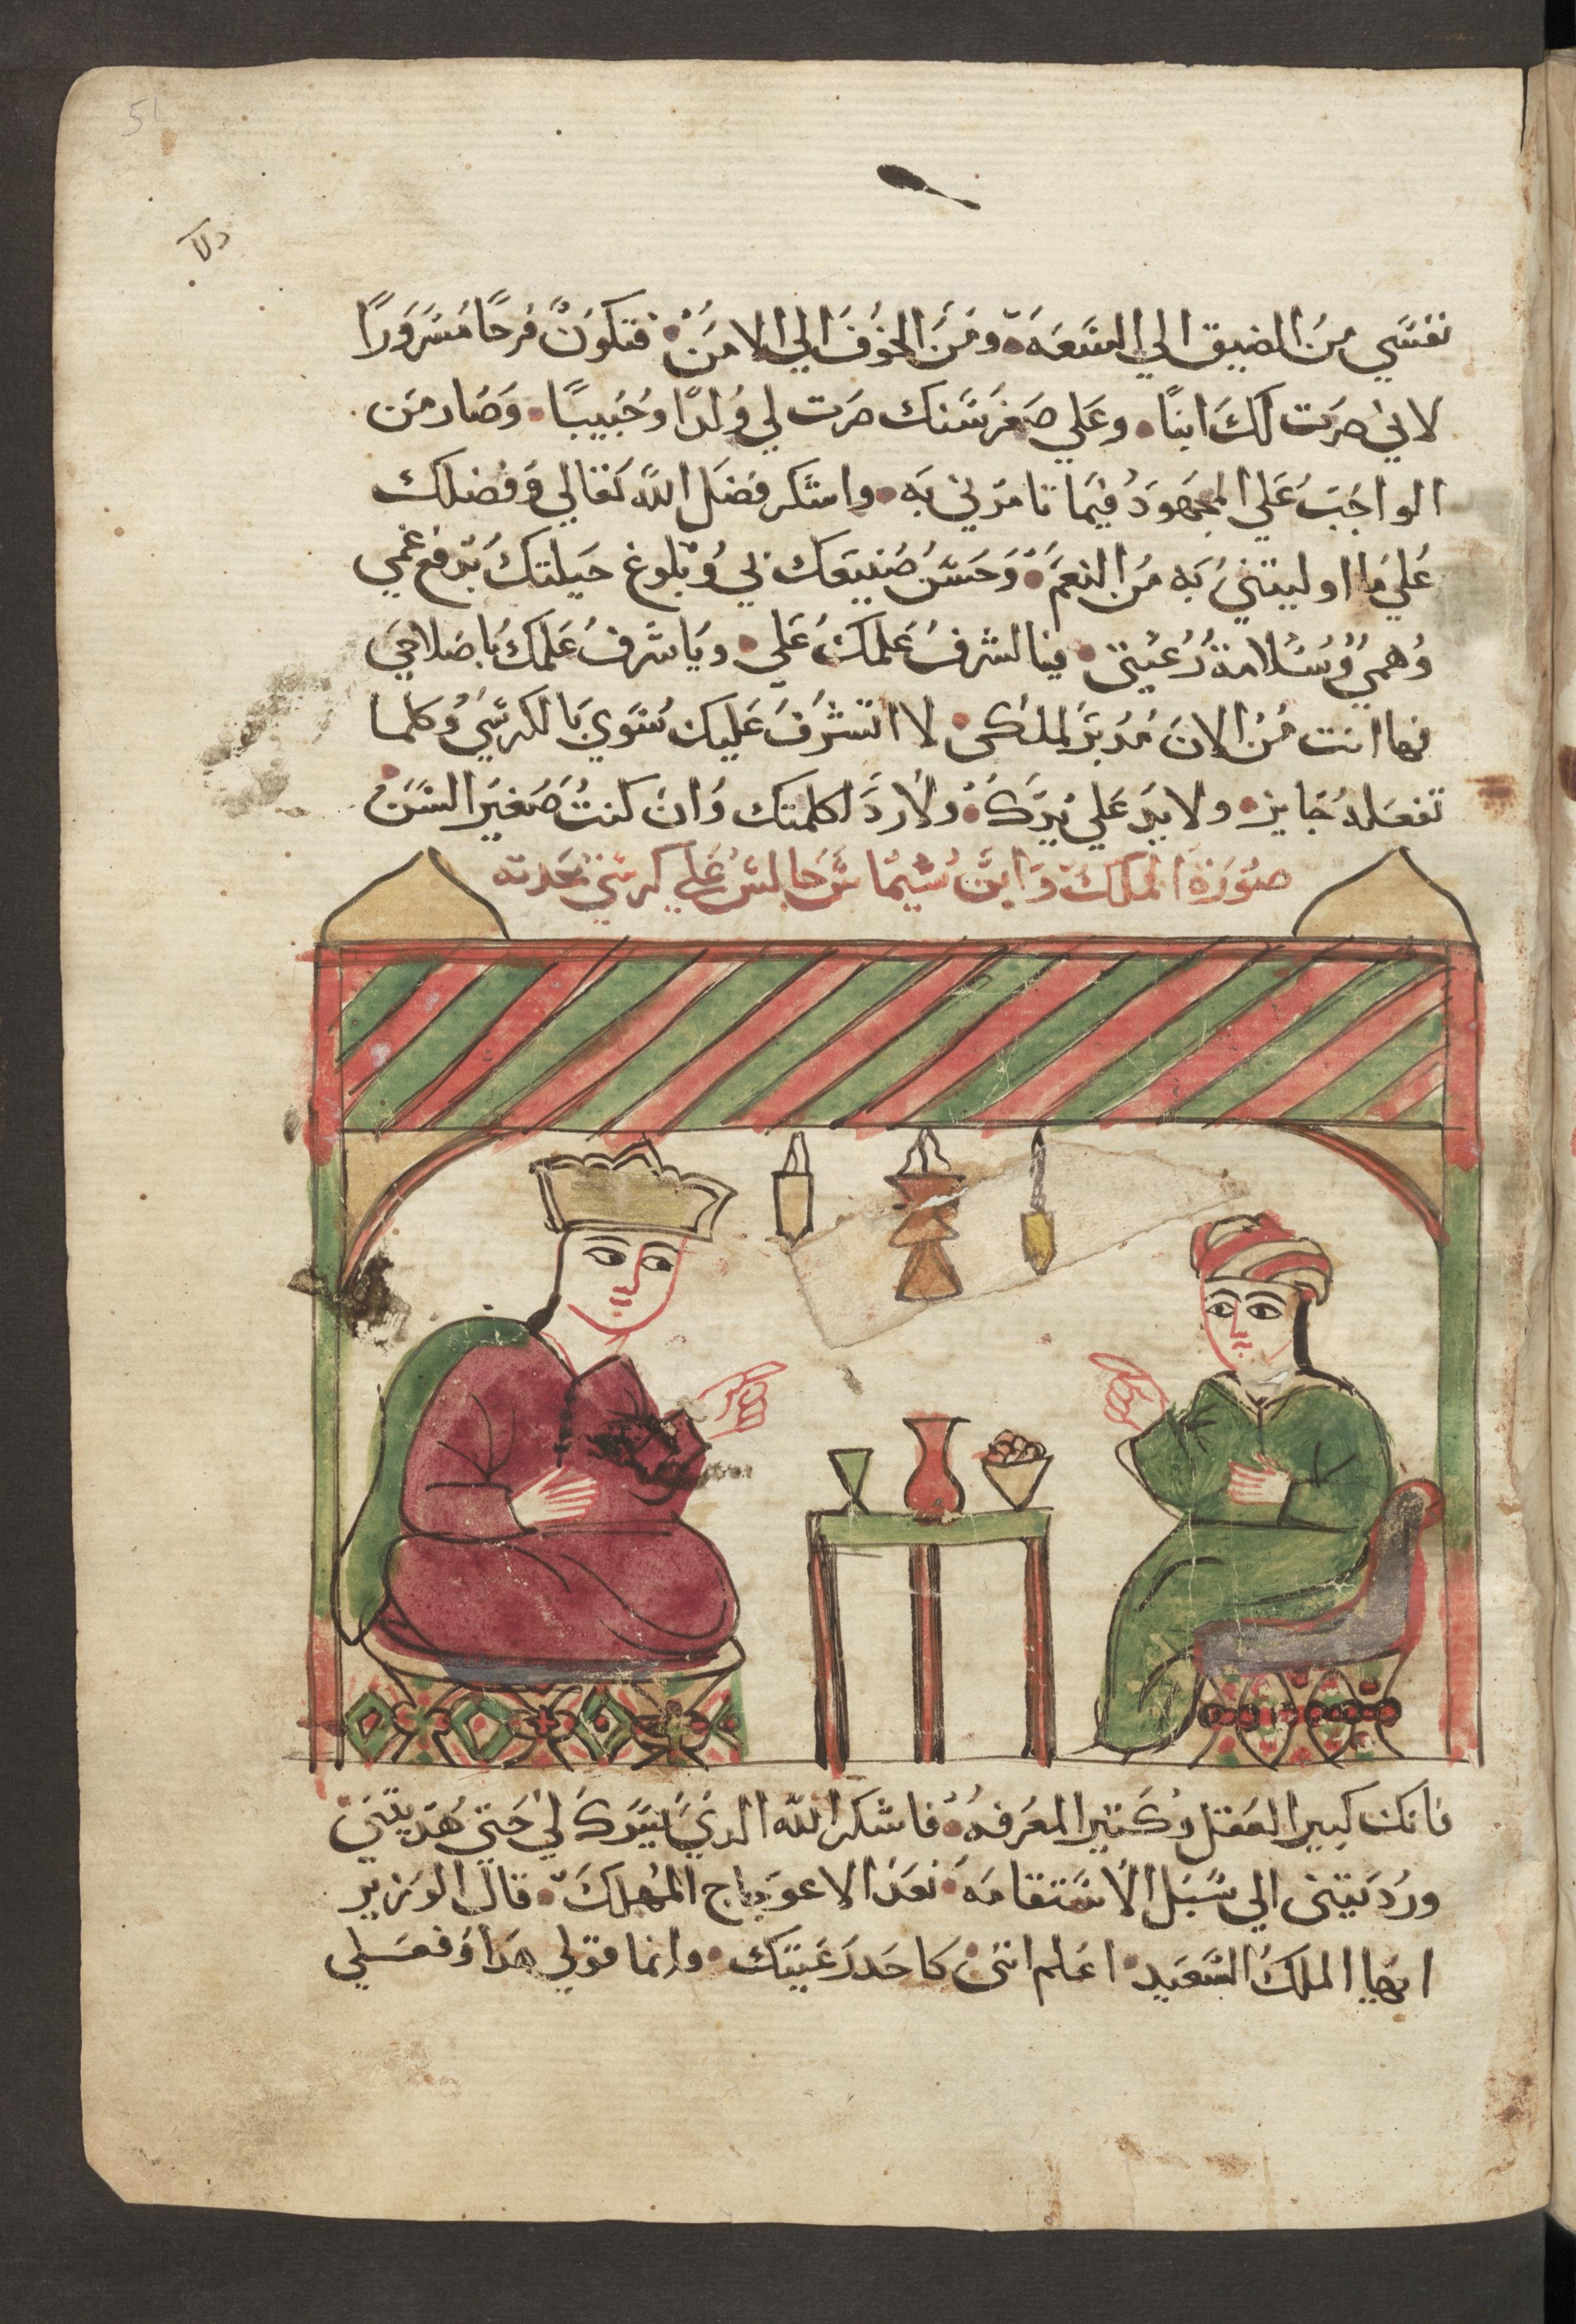 51
نفسي من الضيق الي السعة ومن الخوف الي الامن فتكون فرحا مسرورا
لاني صرت لك ابنا وعلي صغر سنك صرت لي ولدا وحبيبا وصار من
الواجب علي المجهود فيما تامرني به واشكر فضل الله تعالي وفضلك
علي ما اوليتني به من النعم وحسن صنيعك بي وبلوغ حيلتك بدفع غمي
وهمي وسلامة رعيتي فيا لشرف علمك علي ويا شرف علمك باصلاحي
فها انت من الان مدبر لملكي لا اتشرف عليك سوي بالكرسي وكلما
تفعله جايز ولا يد علي يدك ولا رد لكلمتك وان كنت صغير السن
صورة الملك وابن شيماس جالس علي كرسي بحدته
فانك كبير العقل وكتير المعرفه فاشكر الله الدي يسرك لي حتي هديتني
ورديتني الي سبل الاستقامه بعد الاعوجاج المهلك قال الوزير
ايها الملك السعيد اعلم انني كاحد رعيتك وانما قولي هدا وفعلي